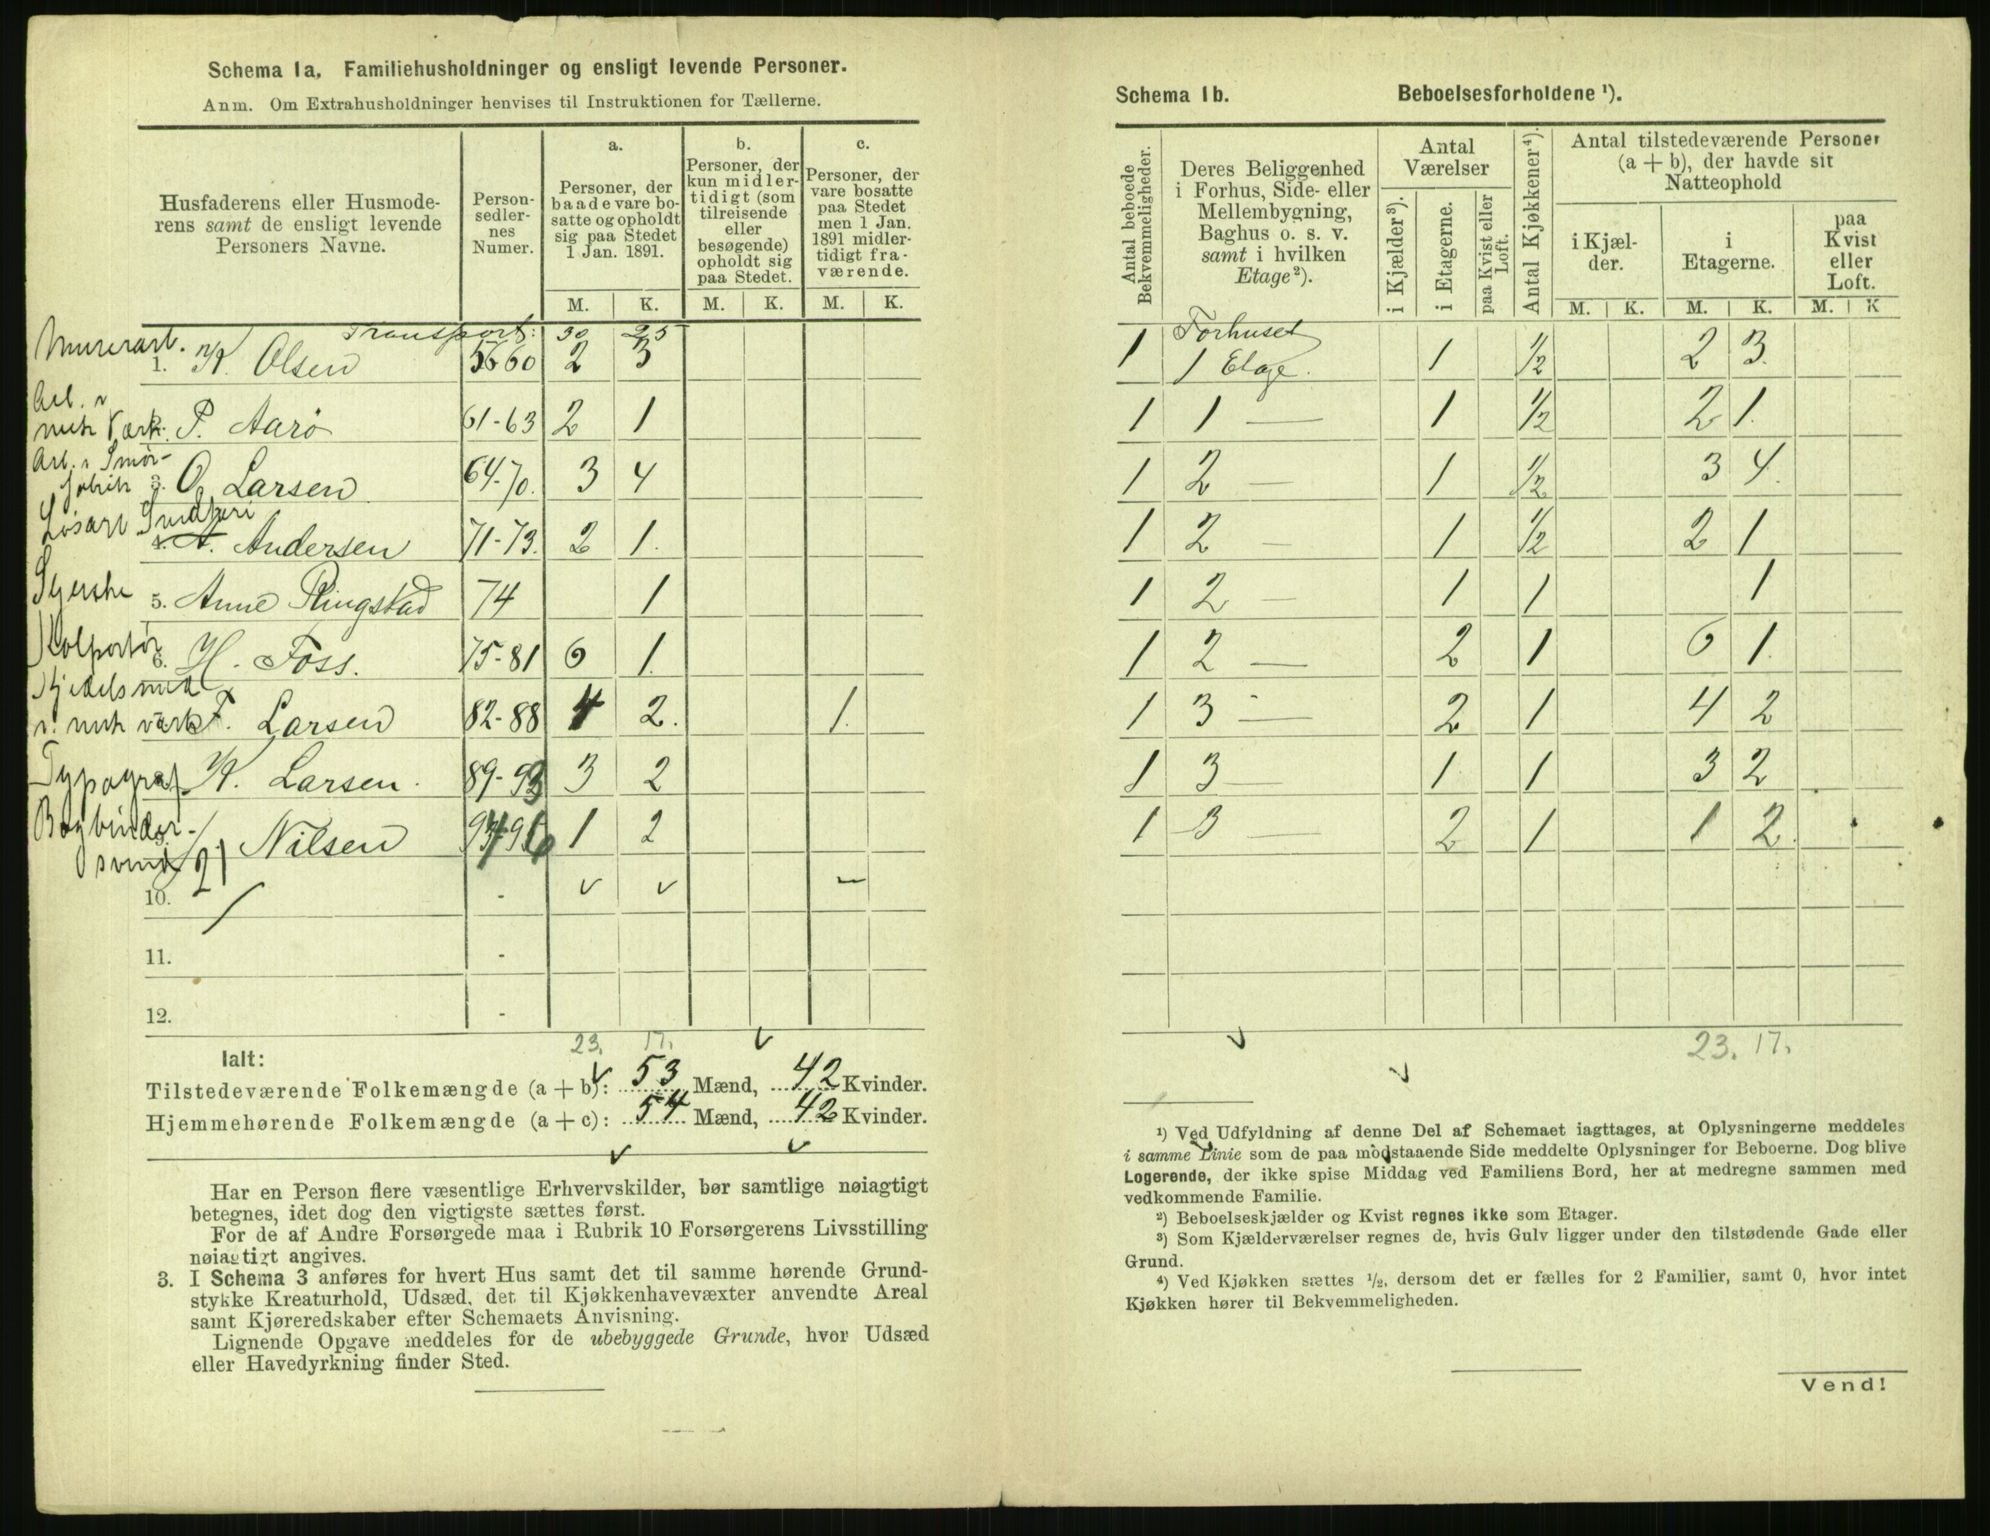 Schema 1a. Familiehusholdninger og ensligt levende Personer.
Anm. Om Extrahusholdninger henvises til Instruktionen for Tællerne.
Husfaderens eller Husmoderens samt de ensligt levende Personers Navne.
Person-sedler-nes Numer.
a. Personer, der baade vare bosatte og opholdt sig paa Stedet 1 Jan. 1891.
b. Personer, der kun midlertidigt (som tilreisende eller besøgende) opholdt sig paa Stedet.
c. Personer, der vare bosatte paa Stedet men 1 Jan. 1891 midlertidigt fraværende.
M. K. M. K. M. K.
Transport: 30 25
Murerarb. 1. K. Olsen 56-60 2 3
Arb. v mek Værk. P. Aarø 61-63 2 1
Arb. v Smørfabrik 3. O. Larsen 64-70. 3 4
Løsarb Smedkeri 4. A. Andersen 71-73. 2 1.
Syerske 5. Anne Ringstad 74 1
Kolportør 6. H. Foss. 75-81 6 1.
Kjedelsmed v. mek værk F. Larsen 82-88 4 2. 1.
Typograf K. Larsen. 89-93 3 2
Bogbindersvend Nilsen 94-96 1 2
10. -
11. -
12. -
23. 17.
Ialt:
Tilstedeværende Folkemængde (a + b): 53 Mænd, 42 Kvinder.
Hjemmehørende Folkemængde (a + c): 54 Mænd, 42 Kvinder.
Har en Person flere væsentlige Erhvervskilder, bør samtlige nøiagtigt
betegnes, idet dog den vigtigste sættes først.
For de af Andre Forsørgede maa i Rubrik 10 Forsørgerens Livsstilling
nøiagtigt angives.
3. I Schema 3 anføres for hvert Hus samt det til samme hørende Grund-
stykke Kreaturhold, Udsæd, det til Kjøkkenhavevæxter anvendte Areal
samt Kjøreredskaber efter Schemaets Anvisning.
Lignende Opgave meddeles for de ubebyggede Grunde, hvor Udsæd
eller Havedyrkning finder Sted.
Schema 1b. Beboelsesforholdene ¹).
Antal beboede Bekvemmeligheder.
Deres Beliggenhed i Forhus, Side- eller Mellembygning, Baghus o. s. v. samt i hvilken Etage²).
Antal Værelser
i Kjælder³).
i Etagerne.
paa Kvist eller Loft.
Antal Kjøkkener⁴).
Antal tilstedeværende Personer (a + b), der havde sit Natteophold
i Kjælder.
i Etagerne.
paa Kvist eller Loft.
M. K. M. K. M. K
1 Forhuset 1 Etage. 1 1/2 2 3.
1 1 — 1 1/2 2 1.
1 2 — 1 1/2 3 4.
1 2 — 1 1/2 2 1
1 2 — 1 1 1
1 2 — 2 1 6 1.
1 3 — 2 1 4 2
1 3 — 1 1 3 2
1 3 — 2 1 1 2.
23. 17.
¹) Ved Udfyldning af denne Del af Schemaet iagttages, at Oplysningerne meddeles
i samme Linie som de paa modstaaende Side meddelte Oplysninger for Beboerne. Dog blive
Logerende, der ikke spise Middag ved Familiens Bord, her at medregne sammen med
vedkommende Familie.
²) Beboelseskjælder og Kvist regnes ikke som Etager.
³) Som Kjælderværelser regnes de, hvis Gulv ligger under den tilstødende Gade eller
Grund.
⁴) Ved Kjøkken sættes 1/2, dersom det er fælles for 2 Familier, samt 0, hvor intet
Kjøkken hører til Bekvemmeligheden.
Vend!